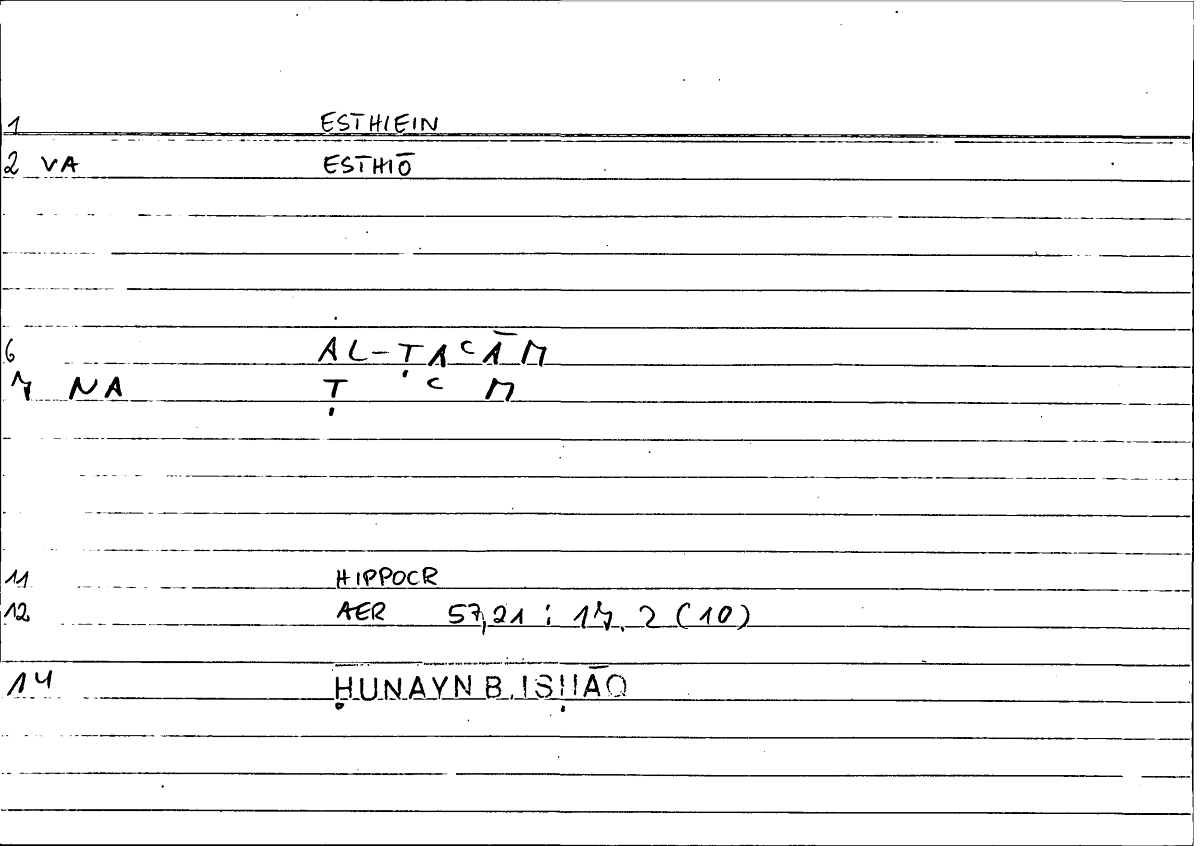 1 ESTHIEIN
2 VA ESTHIŌ
6 AL-ṬAʿĀM
7 NA Ṭ ʿ M
11 HIPPOCR
12 AER 57,21 : 17.2 (10)
14 ḤUNAYN B. ISḤĀQ